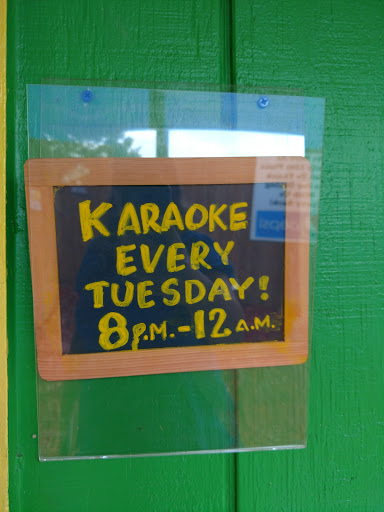 KARAOKE
EVERY
TUESDAY!
8 P.M. - 12 A.M.